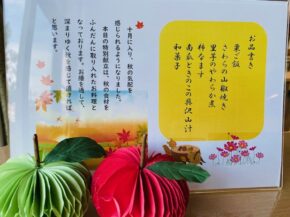 お品書き
栗ご飯
さわらの山椒焼き
里芋のやわらか煮
柿なます
南瓜ときのこの具沢山汁
和菓子
十月に入り、秋の気配を
感じられるようになりました。
本日の特別献立は、秋の食材を
ふんだんに取り入れたお料理と
なっております。お膳を通して、
深まりゆく秋を感じて頂ければ
と思います。